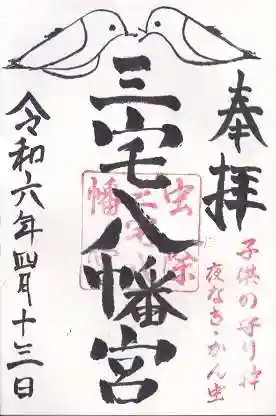 奉拝
子供の守り神
夜なき・かん虫
三宅八幡宮
虫除
三宅八
幡
令和六年四月十三日